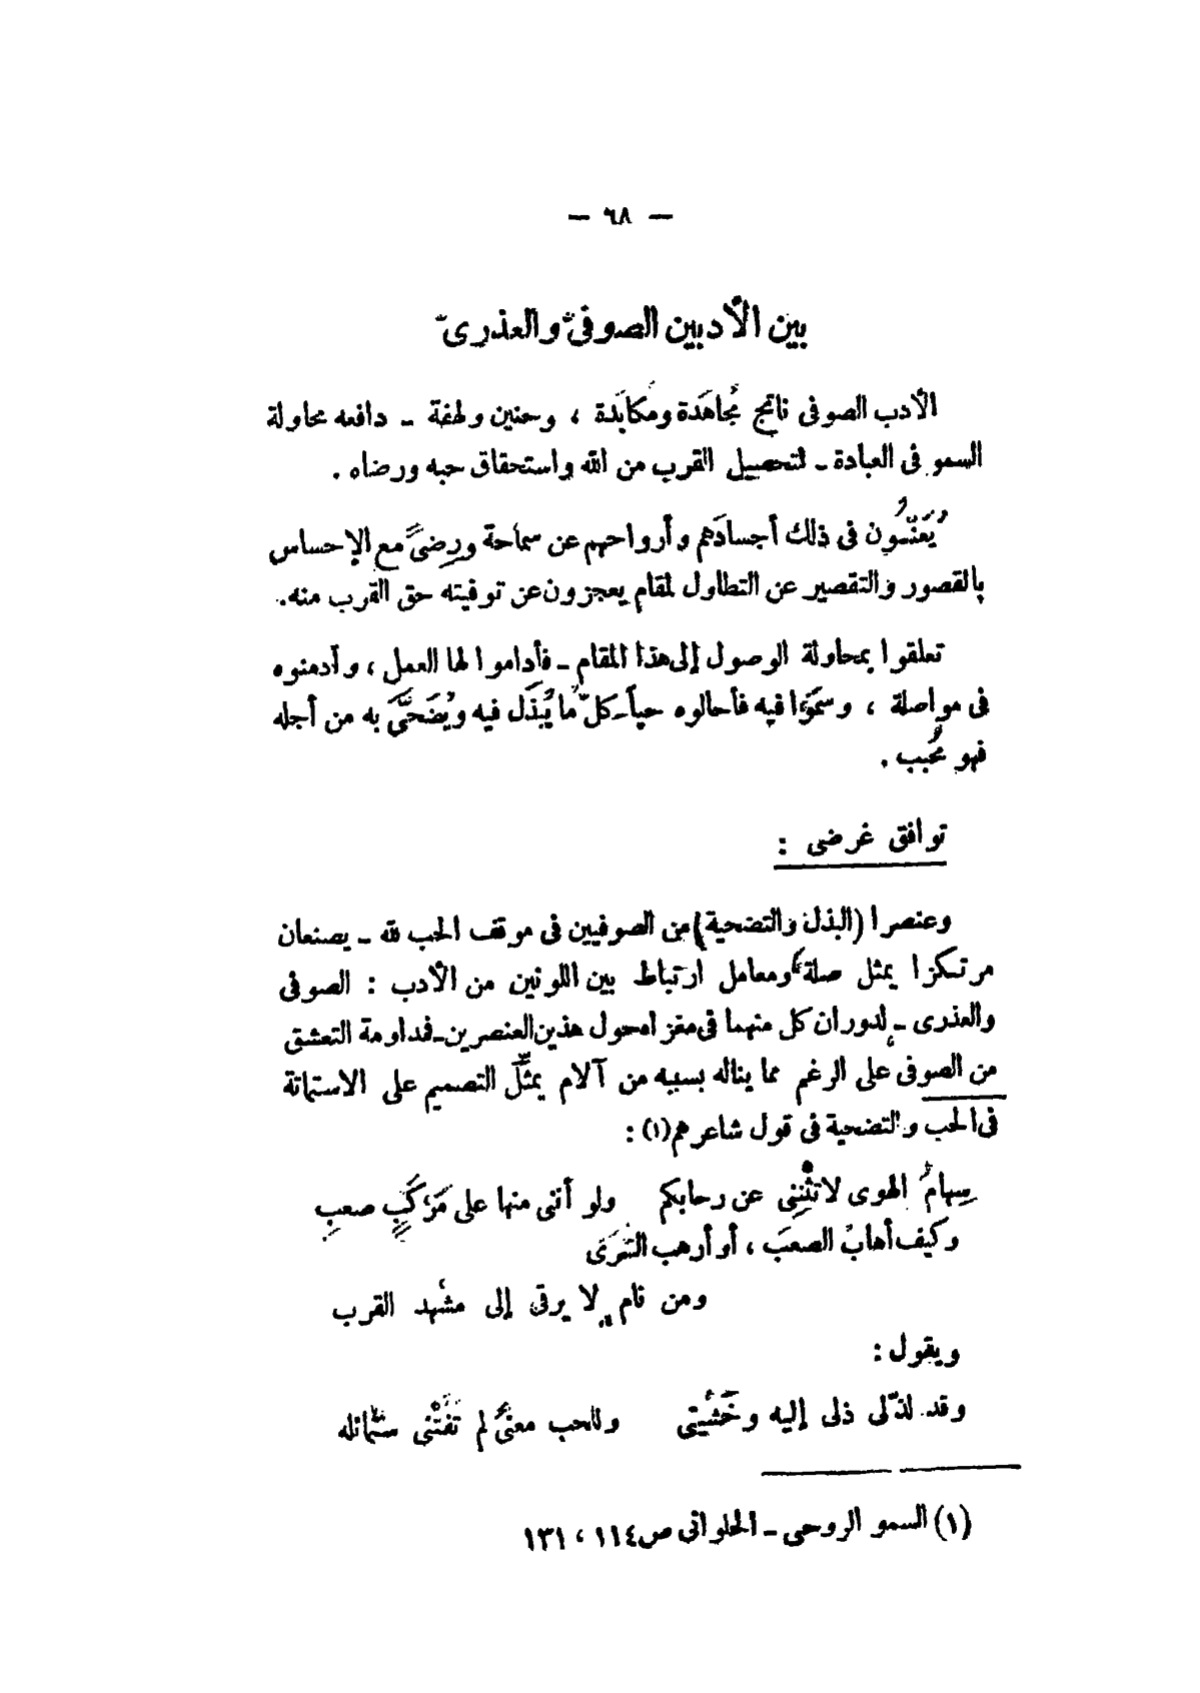 — ٦٨ —
بين الأدبين الصوفىّ والعذرىّ
الأدب الصوفى ناتج مُجاهَدة ومُكابَدة ، وحنين ولهفة ـ دافعه محاولة
السمو فى العبادة ـ لتحصيل القرب من الله واستحقاق حبه ورضاه .
يُعَنُّون فى ذلك أجسادَهم وأرواحهم عن سماحة ورِضىً مع الإحساس
بالقصور والتقصير عن التطاول لمقام يعجزون عن توفيته حق القرب منه.
تعلقوا بمحاولة الوصول إلى هذا المقام ـ فأداموا لها العمل ، وأدمنوه
فى مواصلة ، وسَمَوْا فيه فأحالوه حباً ـ كلّ ما يُبذَل فيه ويُضَحَّى به من أجله
فهو مُحبب .
توافق غرضى :
وعنصرا (البذل والتضحية) من الصوفيين فى موقف الحب لله ـ يصنعان
مرتكزا يمثل صلة ومعامل ارتباط بين اللونين من الأدب : الصوفى
والعذرى ـ لدوران كل منهما فى مغزاه حول هذين العنصرين ـ فمداومة التعشق
من الصوفى على الرغم مما يناله بسببه من آلام يمثِّل التصميم على الاستماتة
فى الحب والتضحية فى قول شاعرهم (١) :
سِهامُ الهوى لا تثْنِنى عن رحابكم ولو أننى منها على مَرْكَبٍ صعبِ
وكيف أهابُ الصعبَ ، أو أرهب السُّرَى
ومن نام لا يرقى إلى مشهد القرب
ويقول :
وقد لذّلى ذلى إليه وخَشْيتى وللحب معنىً لم تَفُتْنى شمائله
(١) السمو الروحى ـ الحلوانى ص ١١٤ ، ١٣١